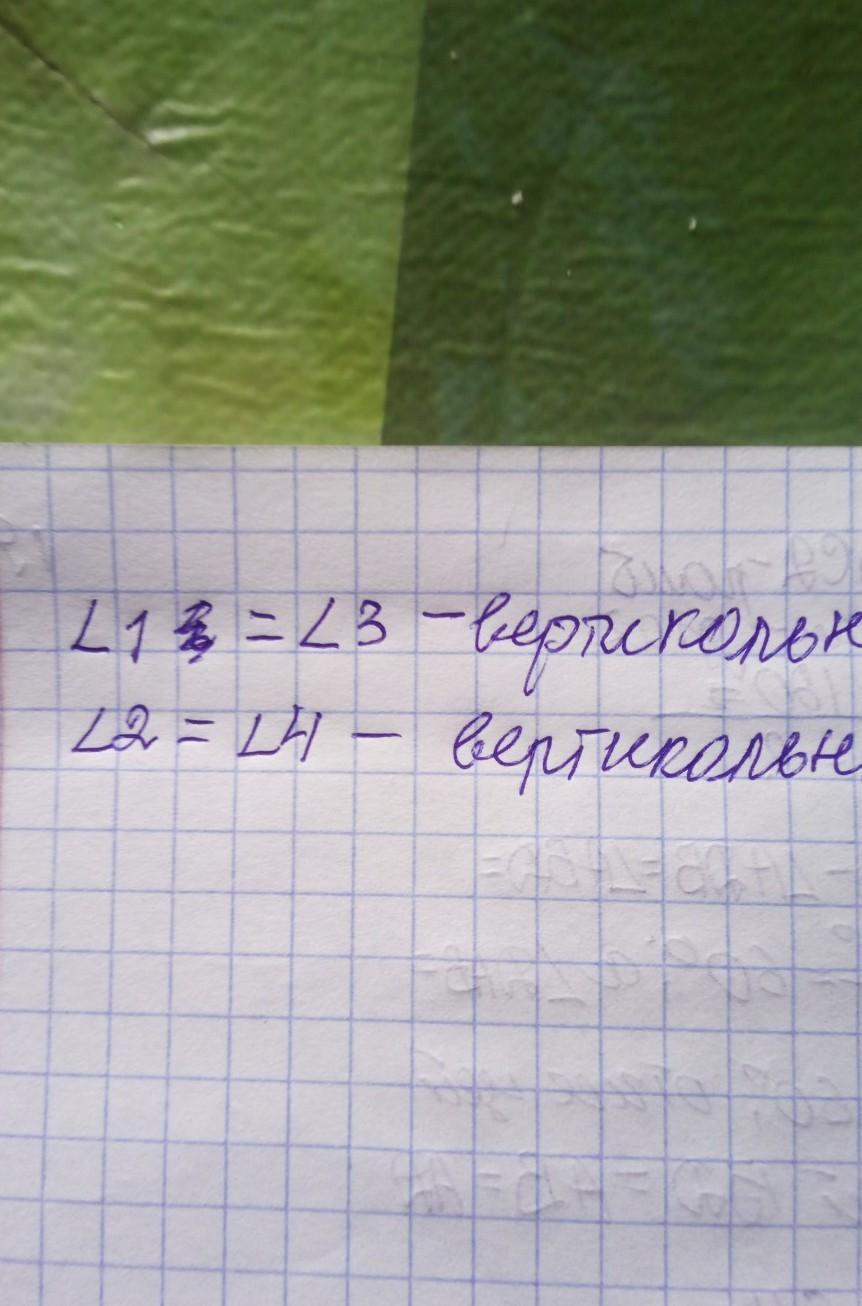 ∠1 = ∠3 – вертикольн
∠2 = ∠4 – вертикольн